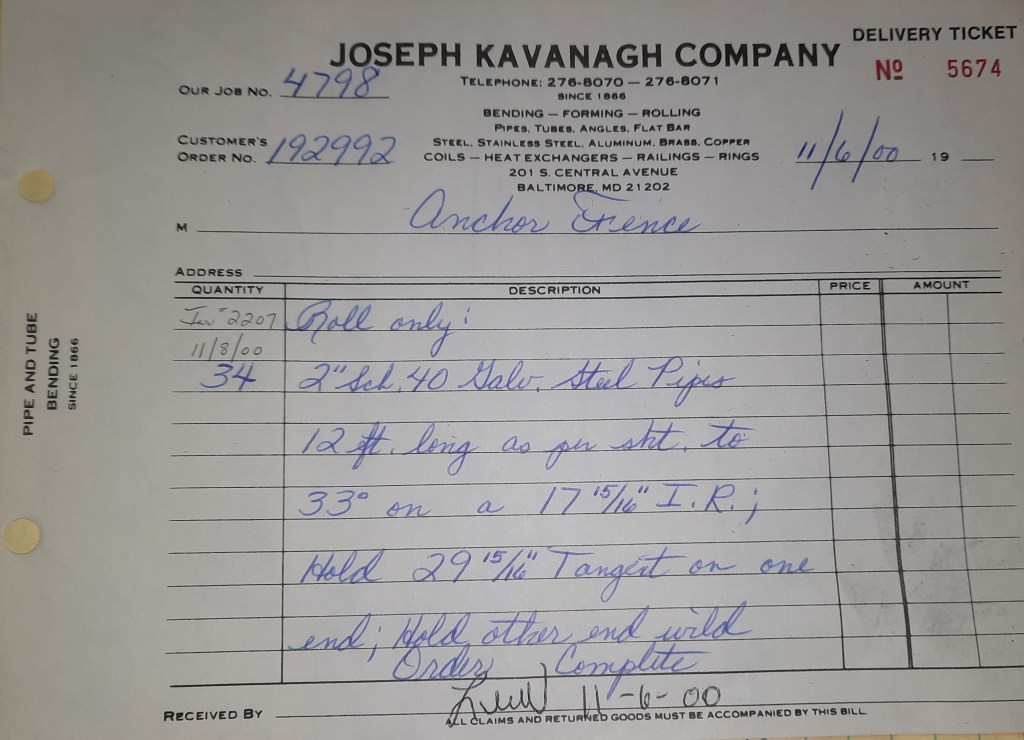 DELIVERY TICKET
JOSEPH KAVANAGH COMPANY
Nº 5674
OUR JOB NO. 4798
TELEPHONE: 276-8070 — 276-8071
SINCE 1866
BENDING — FORMING — ROLLING
PIPES, TUBES, ANGLES, FLAT BAR
CUSTOMER'S
ORDER NO. 192992
STEEL, STAINLESS STEEL, ALUMINUM, BRASS, COPPER
COILS — HEAT EXCHANGERS — RAILINGS — RINGS
11/6/00 19
201 S. CENTRAL AVENUE
BALTIMORE, MD 21202
M Anchor Fence
ADDRESS
QUANTITY DESCRIPTION PRICE AMOUNT
Inv # 2207 Roll only:
11/8/00
34 2" Sch. 40 Galv. Steel Pipes
12 ft. long as per sht. to
33° on a 17 15/16" I.R.;
Hold 29 15/16" Tangent on one
end; Hold other end wild
Order Complete
RECEIVED BY 11-6-00
ALL CLAIMS AND RETURNED GOODS MUST BE ACCOMPANIED BY THIS BILL
PIPE AND TUBE
BENDING
SINCE 1866